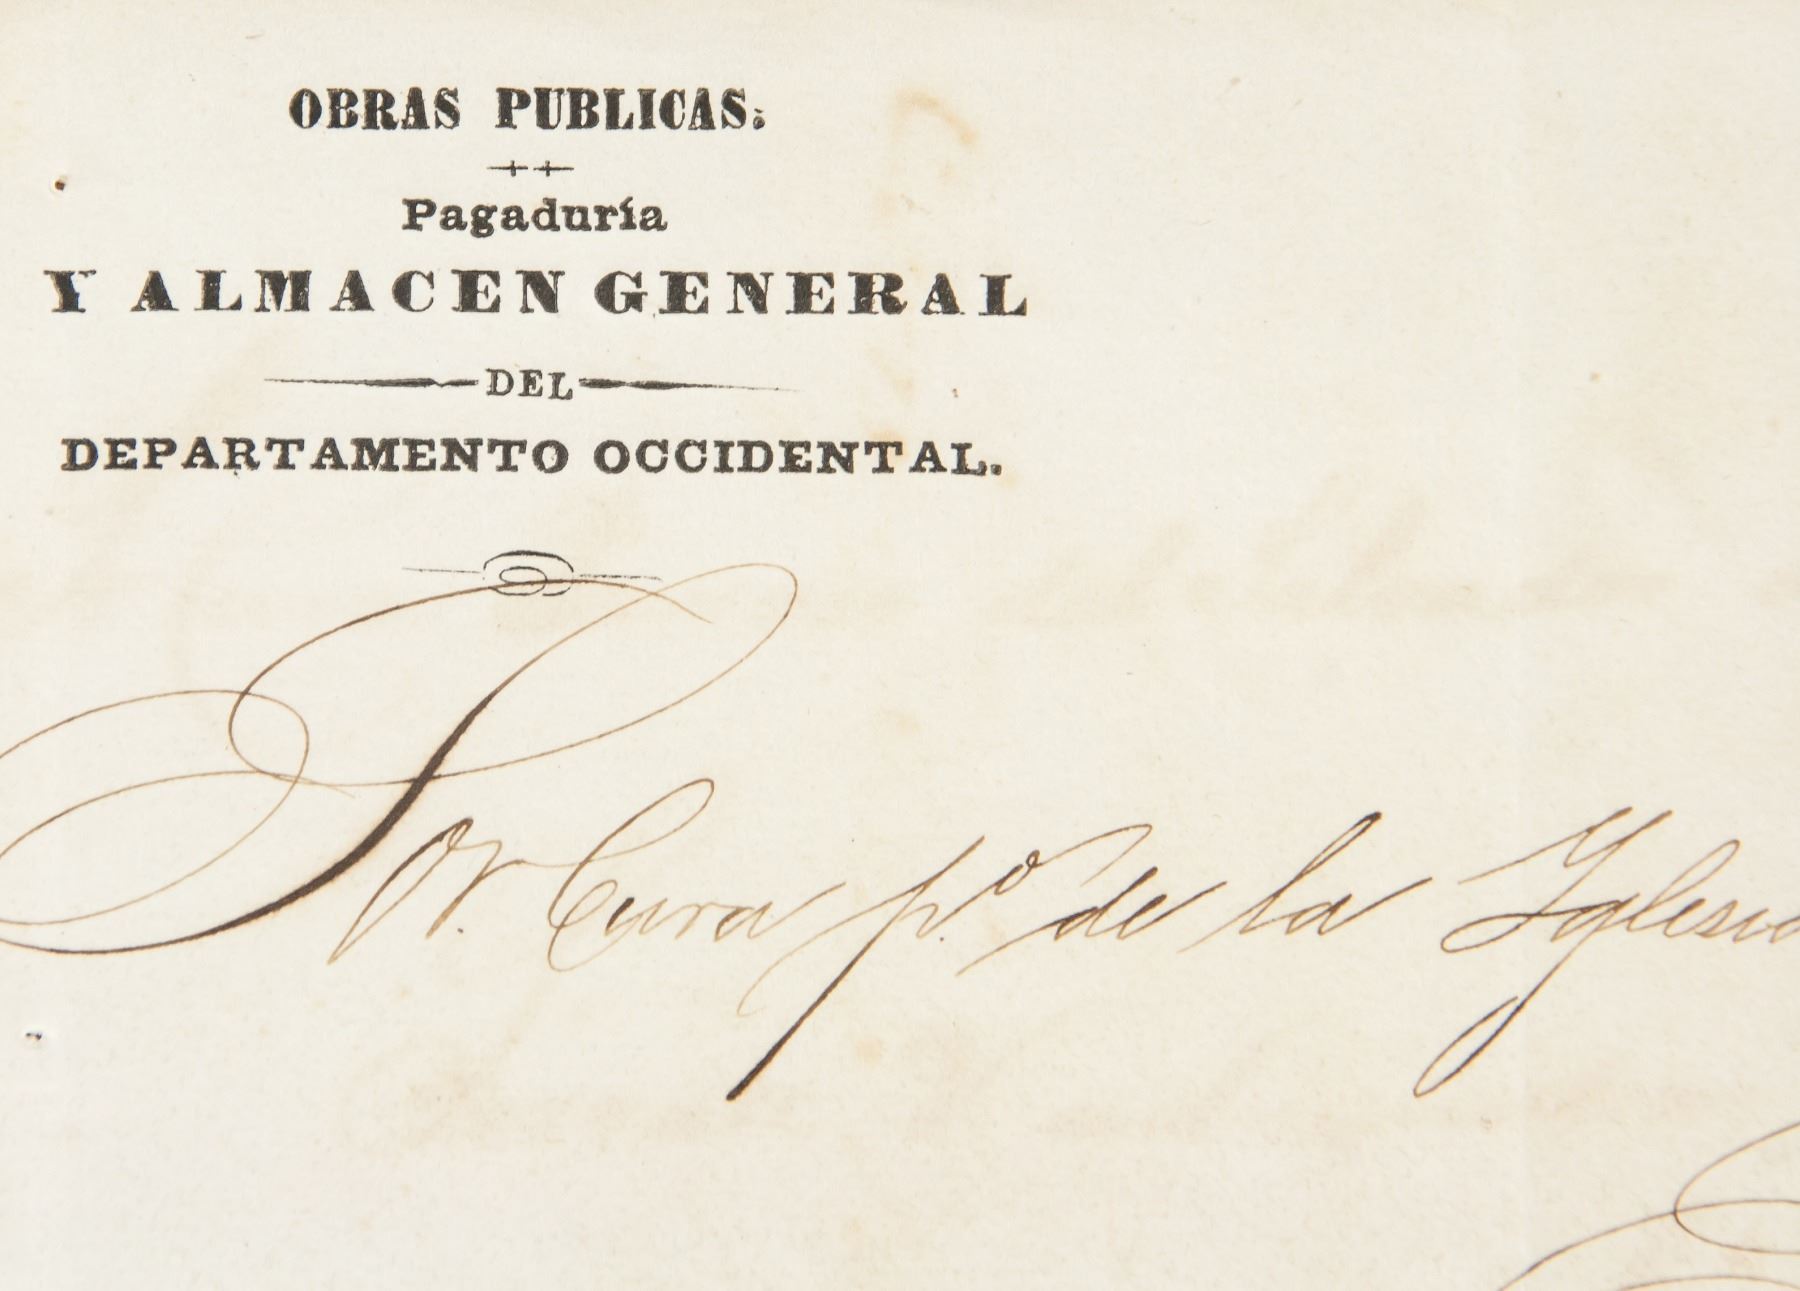 OBRAS PUBLICAS.
Pagaduría
Y ALMACEN GENERAL
DEL
DEPARTAMENTO OCCIDENTAL.
Sor. Cura p.º de la Yglesia